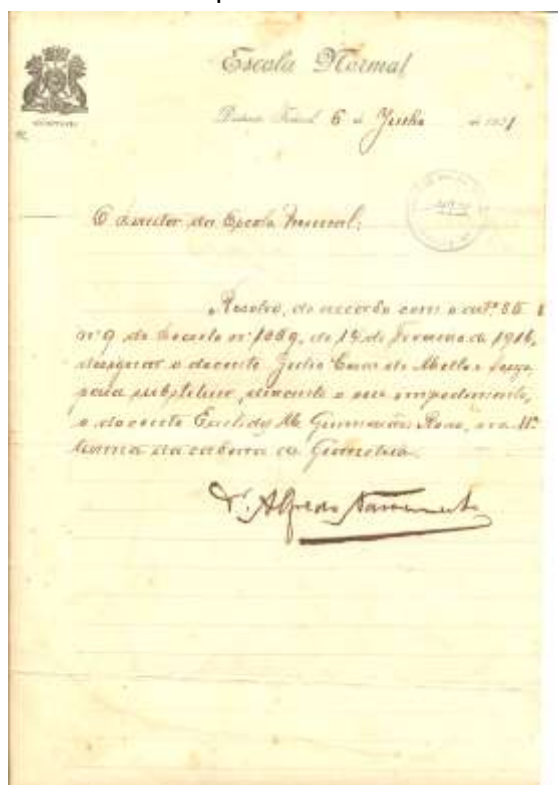 Escola Normal
Districto Federal 6 de Junho de 1921
O director da Escola Normal:
Resolve, de accordo com o artº 85
nº 9 do Decreto nº 1059, de 14 de Fevereiro de 1916,
designar o docente Julio Cesar de Mello e Souza
para substituir, durante o seu impedimento,
o docente Euclides M. Guimarães Roxo, na 11ª
turma da cadeira de Geometria.
Dr. Alfredo Nascimento